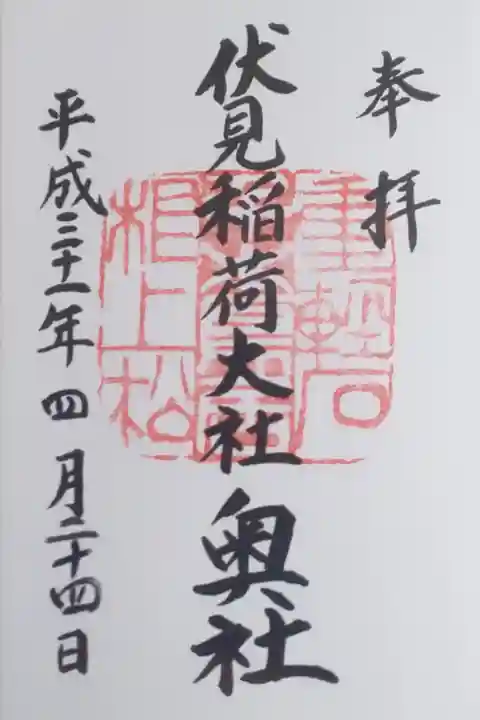 奉拝
伏見稲荷大社奥社
平成三十一年四月二十四日